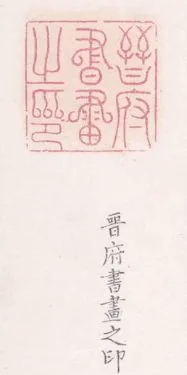 晉府
書畫
之印
晉府書畫之印